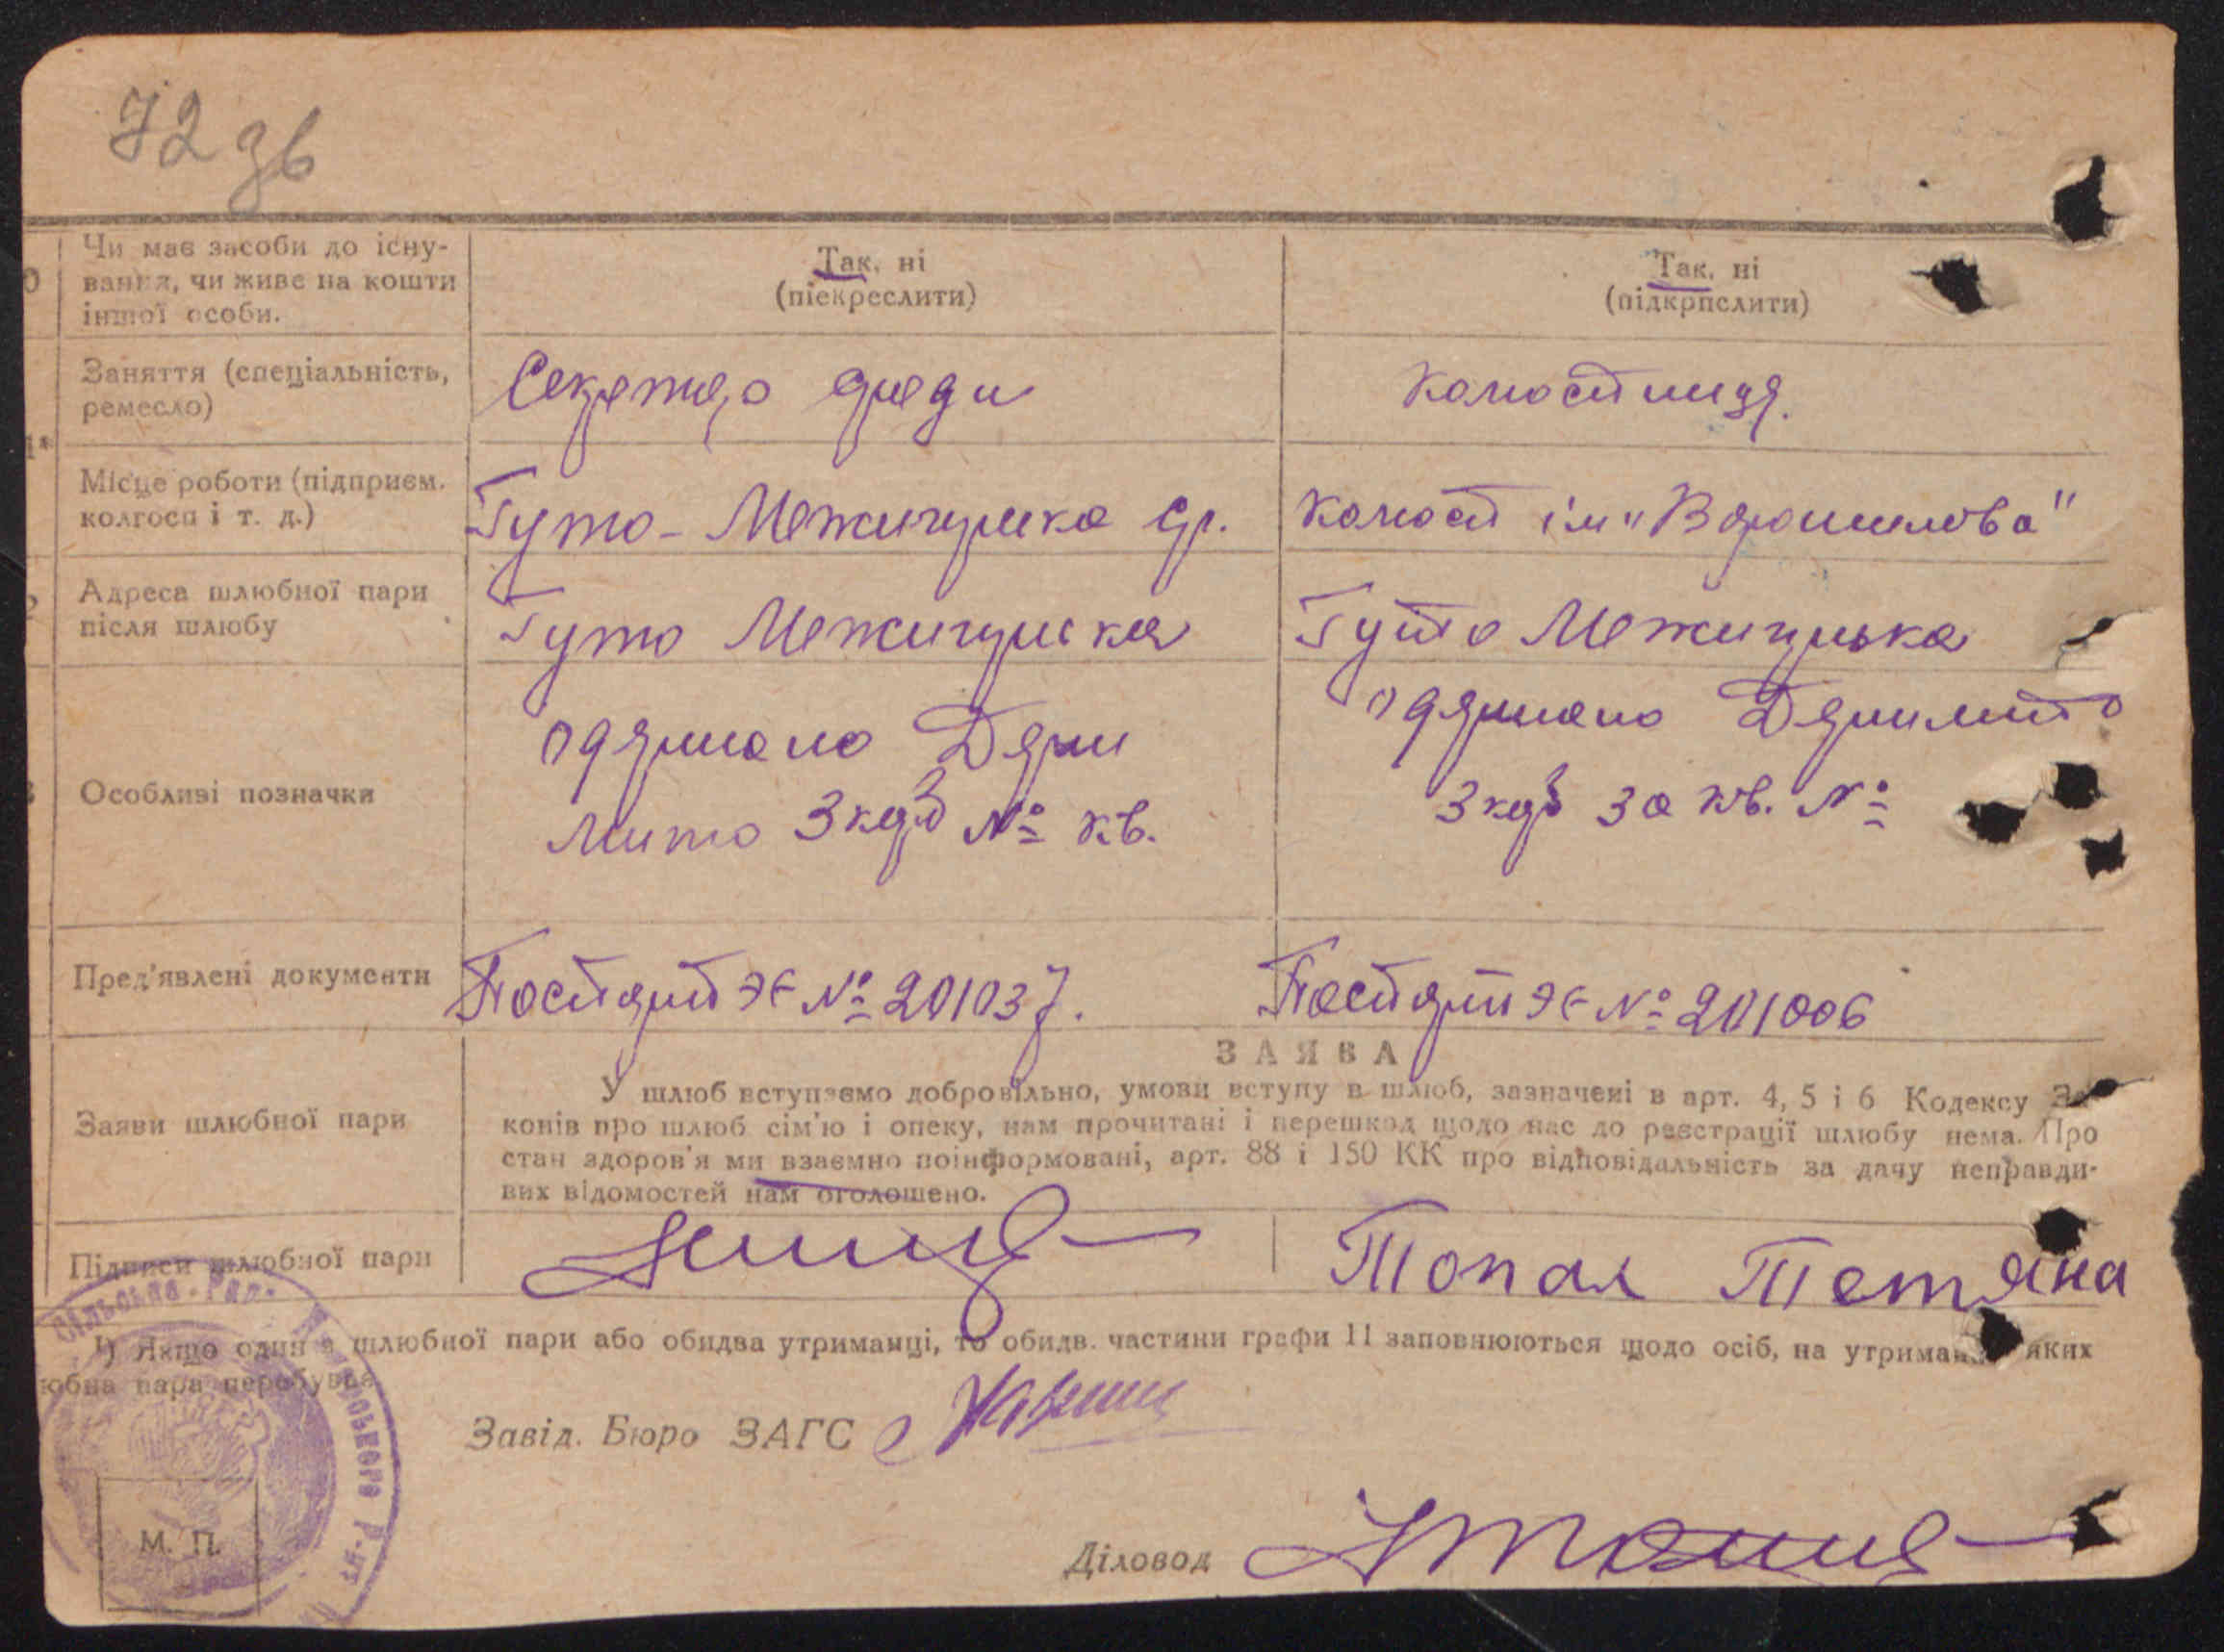 72 зв
Чи має засоби до існу-
вання, чи живе на кошти
іншої особи.
Так, ні
(піекреслити)
Так, ні
(підкрпслити)
Заняття (спеціальність,
ремесло)
Секретар
Місце роботи (підприєм.
колгосп і т. д.)
Гуто-Межигірска ср.
колгосп ім "Ворошилова"
Адреса шлюбної пари
після шлюбу
Гуто Межигірска
Гуто Межигірька
Особливі позначки
одержано Держ
мито 3 крб № кв.
одержано Держмито
3 крб за кв. №
Пред'явлені документи
Паспорт ЭЄ № 201037.
Паспорт ЭЄ № 201006
ЗАЯВА
Заяви шлюбної пари
У шлюб вступаємо добровільно, умови вступу в шлюб, зазначені в арт. 4, 5 і 6 Кодексу За-
конів про шлюб сім'ю і опеку, нам прочитані і перешкод щодо нас до реєстрації шлюбу нема. Про
стан здоров'я ми взаємно поінформовані, арт. 88 і 150 КК про відповідальність за дачу неправди-
вих відомостей нам оголошено.
Підписи шлюбної пари
Топал Тетяна
¹) Якщо один з шлюбної пари або обидва утриманці, то обидв. частини графи 11 заповнюються щодо осіб, на утриманні яких
юбна пара перебуває
Завід. Бюро ЗАГС
М. П.
Діловод